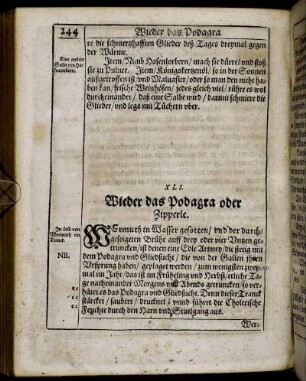 244
Wieder das Podagra
re die schmertzhafften Glieder deß Tages dreymal gegen
der Wärme.
Item, Nimb Hasenlorbern / mach sie dürre / und stoß
sie zu Pulver. Item / Königskertzenöl / so in der Sonnen
außgetroffen ist / und Maluasier / oder so man den nicht ha-
ben kan / frische Weinhöfen / jedes gleich viel / rühre es wol
durcheinander / daß eine Salbe wird / damit schmiere die
Glieder / und leg mit Tüchern über.
XLI.
Wieder das Podagra oder
Zipperle.
WErmuth in Wasser gesotten / und der durch-
geseigeten Brühe auff drey oder vier Untzen ge-
truncken / ist denen eine Edle Artzney die stetig mit
dem Podagra und Gliedsucht / die von der Gallen ihren
Ursprung haben / geplaget werden / zum wenigsten zwey-
mal im Jahr / das ist im Frühling und Herbst etliche Ta-
ge nacheinander Morgens und Abends getruncken / so ver-
hütet es das Podagra und Gliedsucht. Denn dieser Tranck
stärcket / saubert / drucknet / und führet die Cholerische
Feuchte durch den Harn und Stuelgang aus.
NB.
Wer-